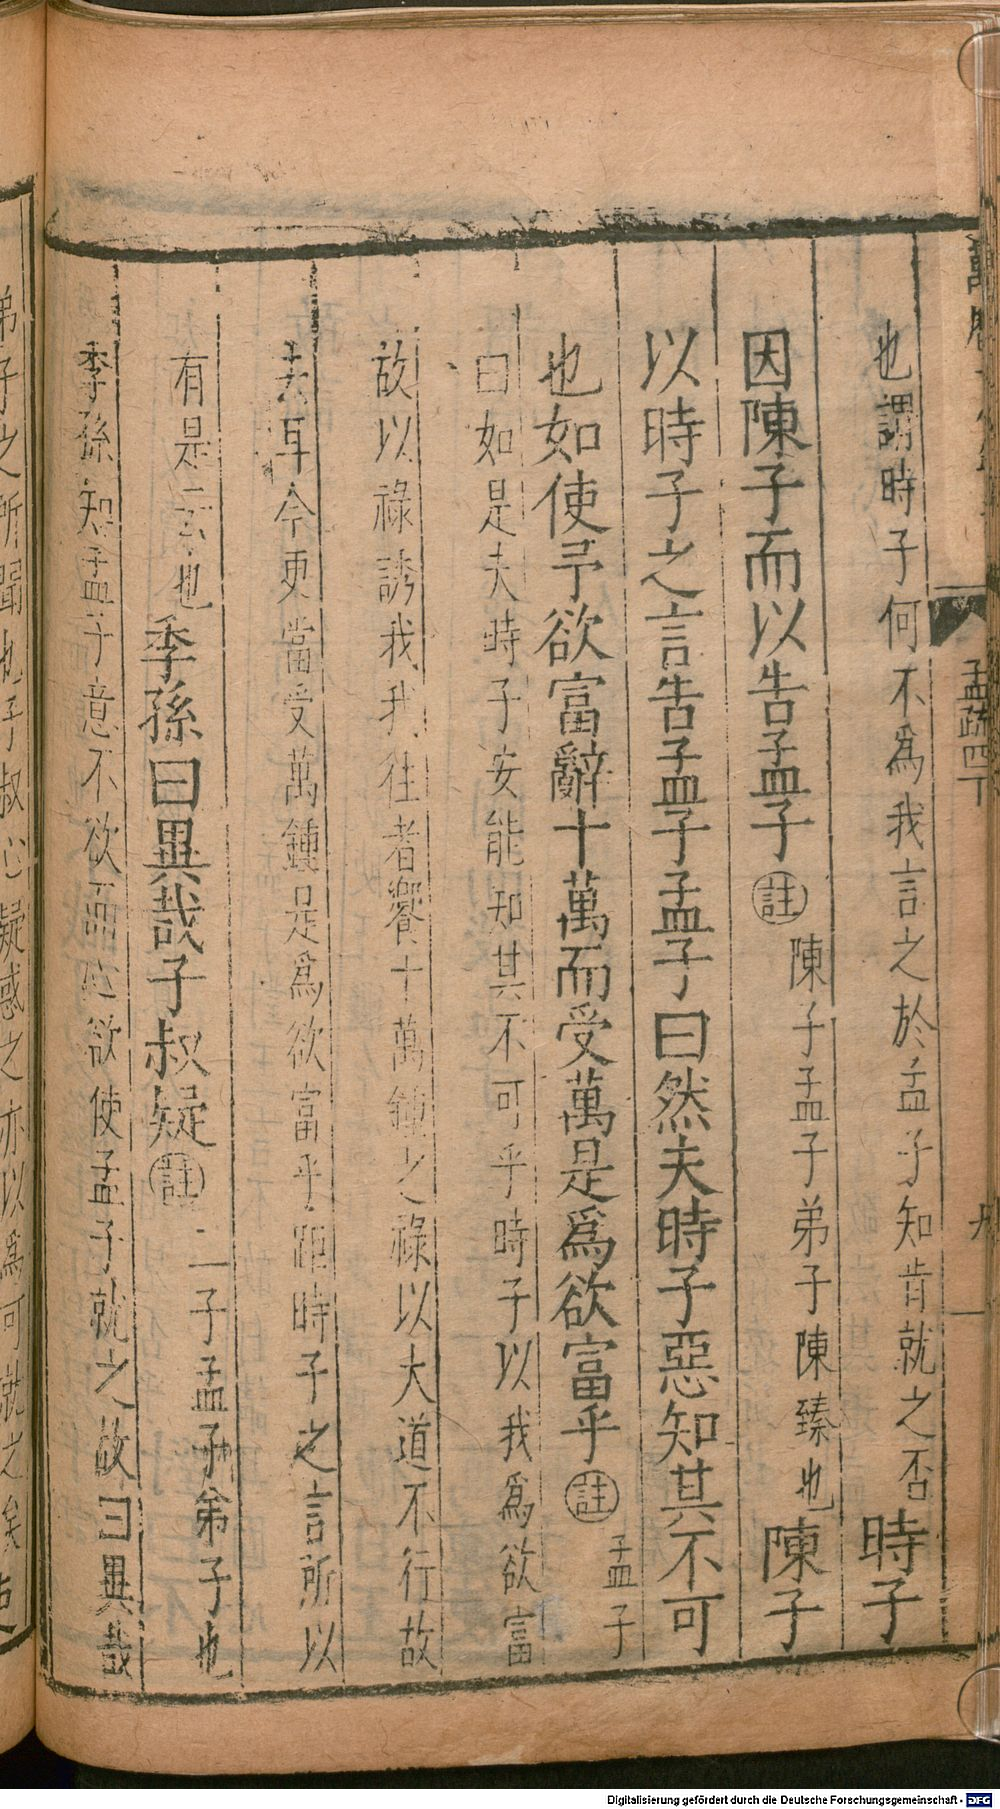 也謂時子何不爲我言之於孟子知肯就之否時子
因陳子而以告孟子註陳子孟子弟子陳臻也陳子
以時子之言告孟子孟子曰然夫時子惡知其不可
也如使予欲富辭十萬而受萬是爲欲富乎註孟子
曰如是夫時子安能知其不可乎時子以我爲欲富
故以祿誘我我往者饗十萬鍾之祿以大道不行故
去耳今更當受萬鍾是爲欲富乎距時子之言所以
有是云也季孫曰異哉子叔疑註二子孟子弟子也
季孫知孟子意不欲而心欲使孟子就之故曰異哉
弟子之所聞也子叔心疑惑之亦以爲可就之矣
孟疏四下
Digitalisierung gefördert durch die Deutsche Forschungsgemeinschaft - DFG